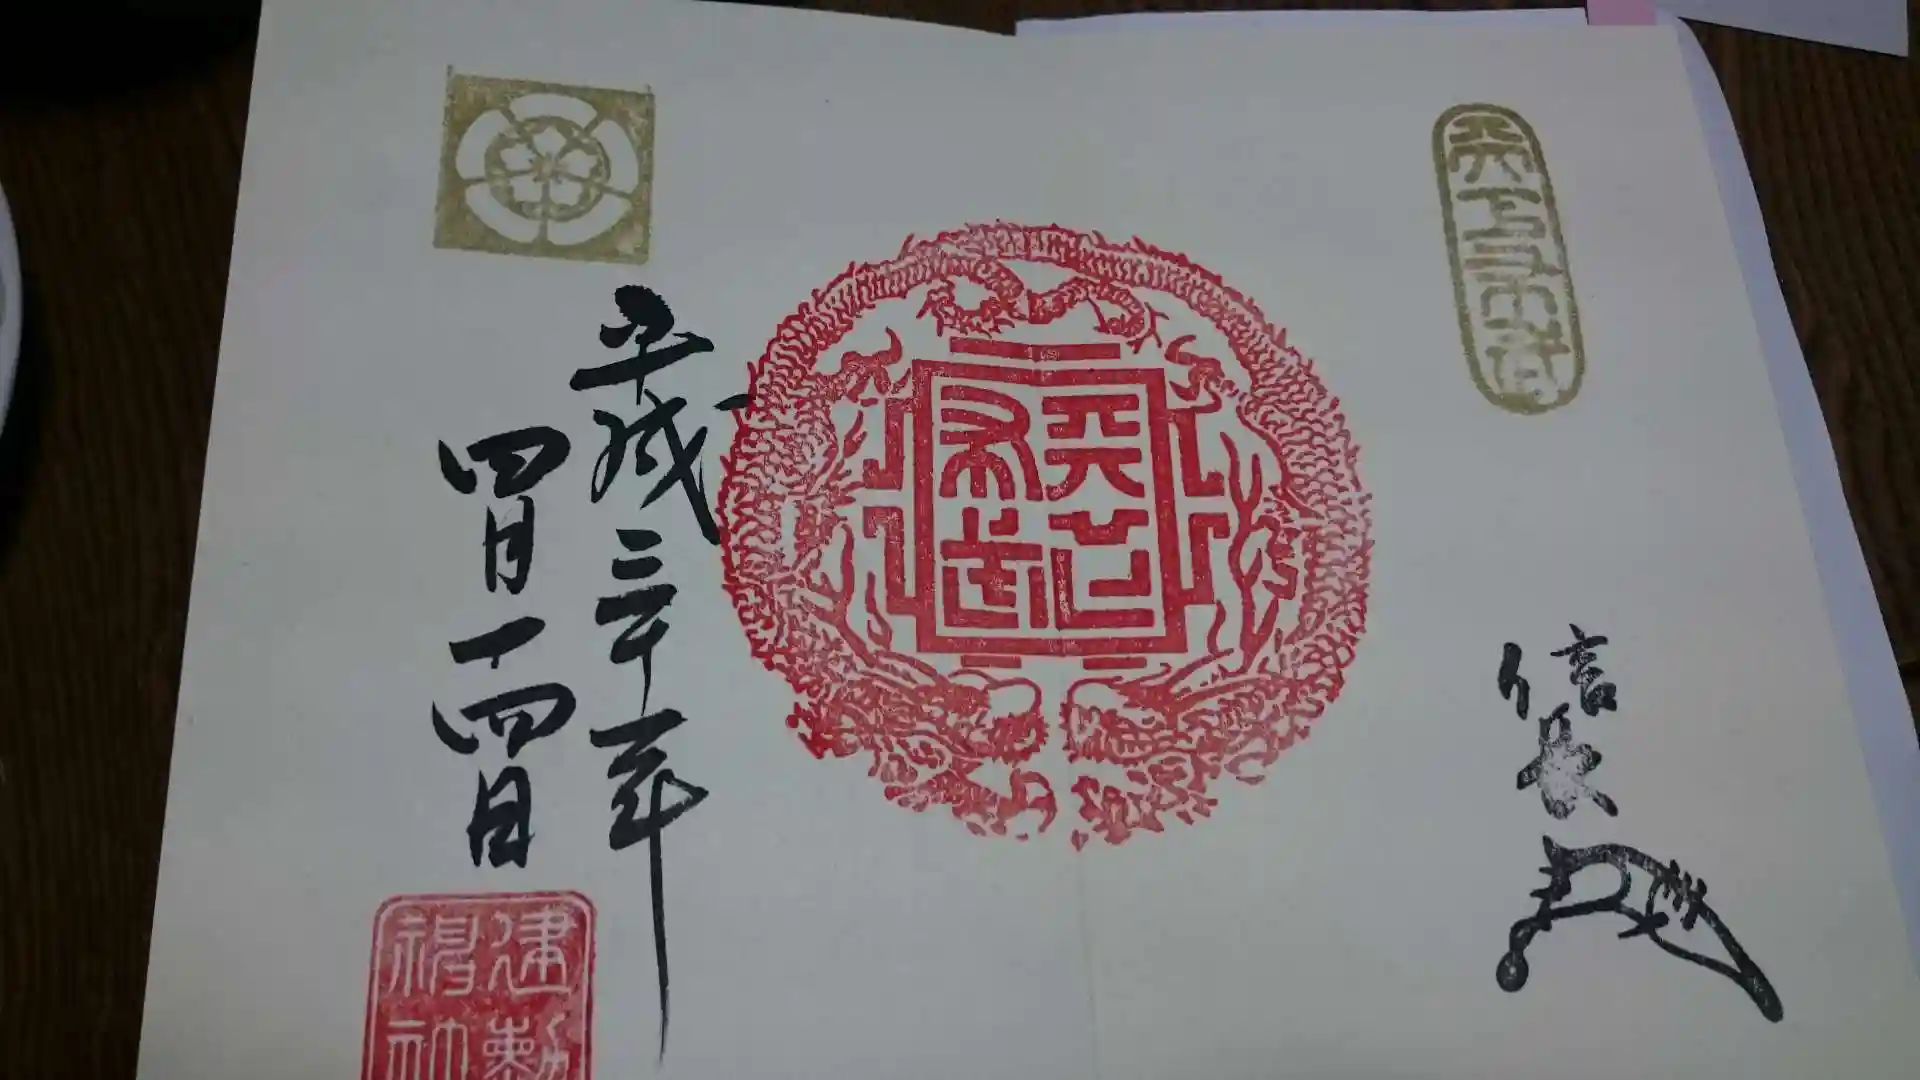 天下布武
信長
天下布武
平成三十年
四月十四日
建勲
神社